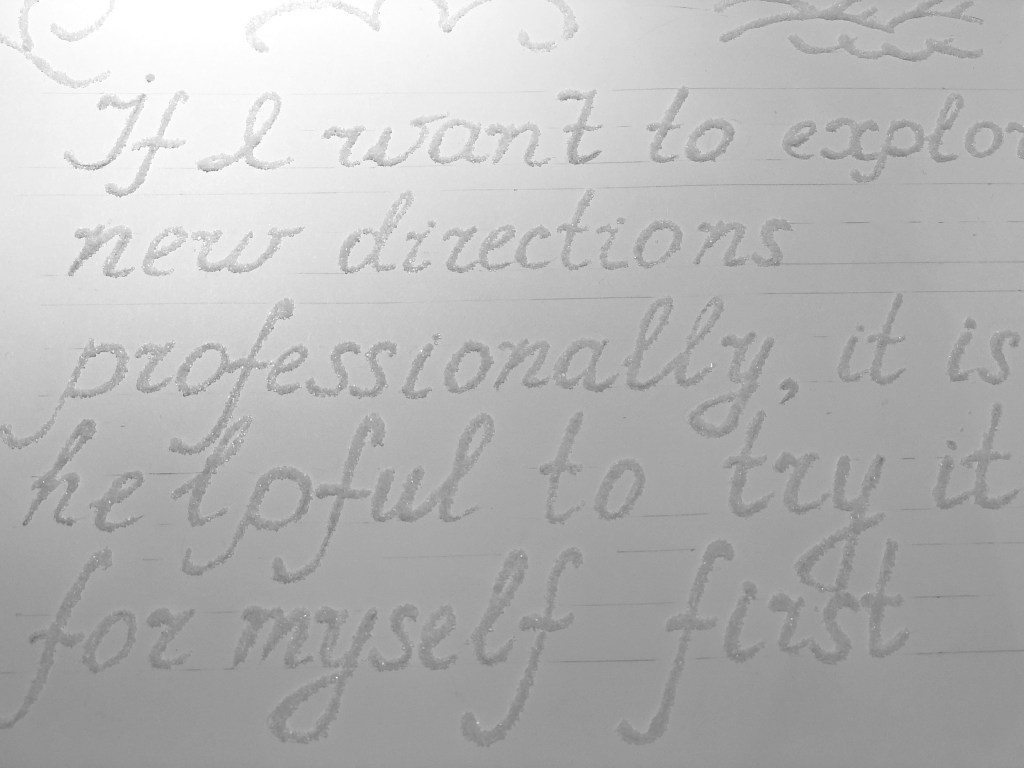 If I want to explor
new directions
professionally, it is
helpful to try it
for myself first